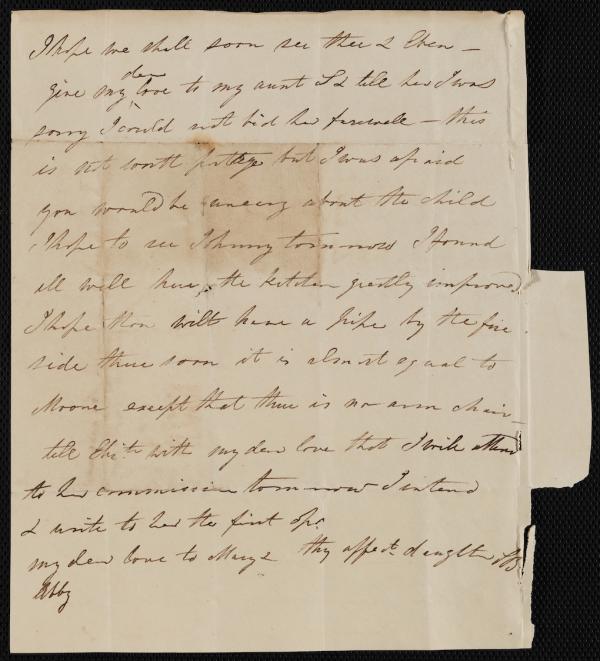 I hope we shall soon see thee & Eben –
dear
give my love to my aunt S & tell her I was
sorry I could not bid her farewell – this
is not worth postage but I was afraid
you would be uneasy about the child
I hope to see Johnny tomorrow I found
all well here, the kitchen greatly improved
I hope thou wilt have a pipe by the fire
side there soon it is almost equal to
Moore except that there is no arm chair –
tell Eliz.th with my dear love that I will attend
to her commission tomorrow I intend
& write to her the first op.
my dear love to Mary & thy affect. daughter
Abby